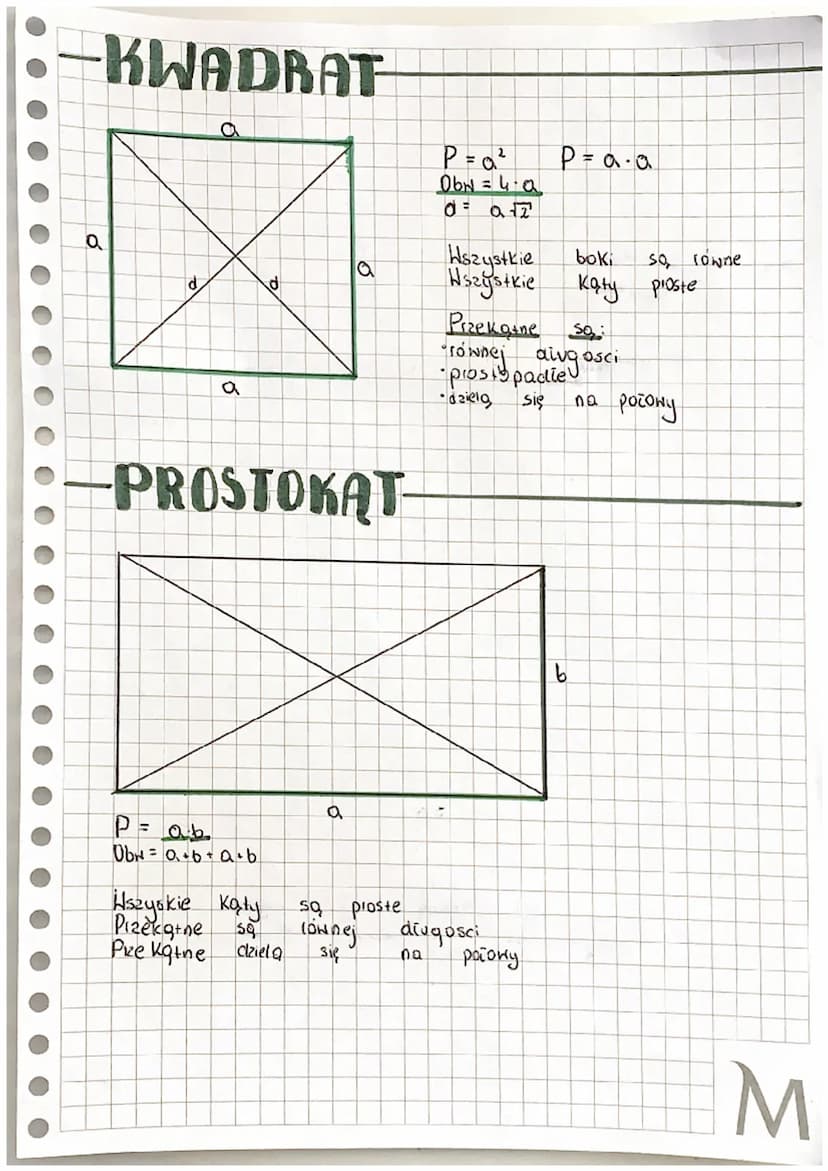 KWADRAT
a
a
a
d
d
a
P = a² P = a·a
Obw = 4·a
d = a√2
Wszystkie boki są równe
Wszystkie kąty proste
Przekątne są:
·równej długości
·prostopadłe
·dzielą się na połowy
PROSTOKĄT
b
a
P = a·b
Obw = a+b+a+b
Wszyskie kąty są proste
Przekątne są równej długosci
Przekątne dzielą się na połowy
M